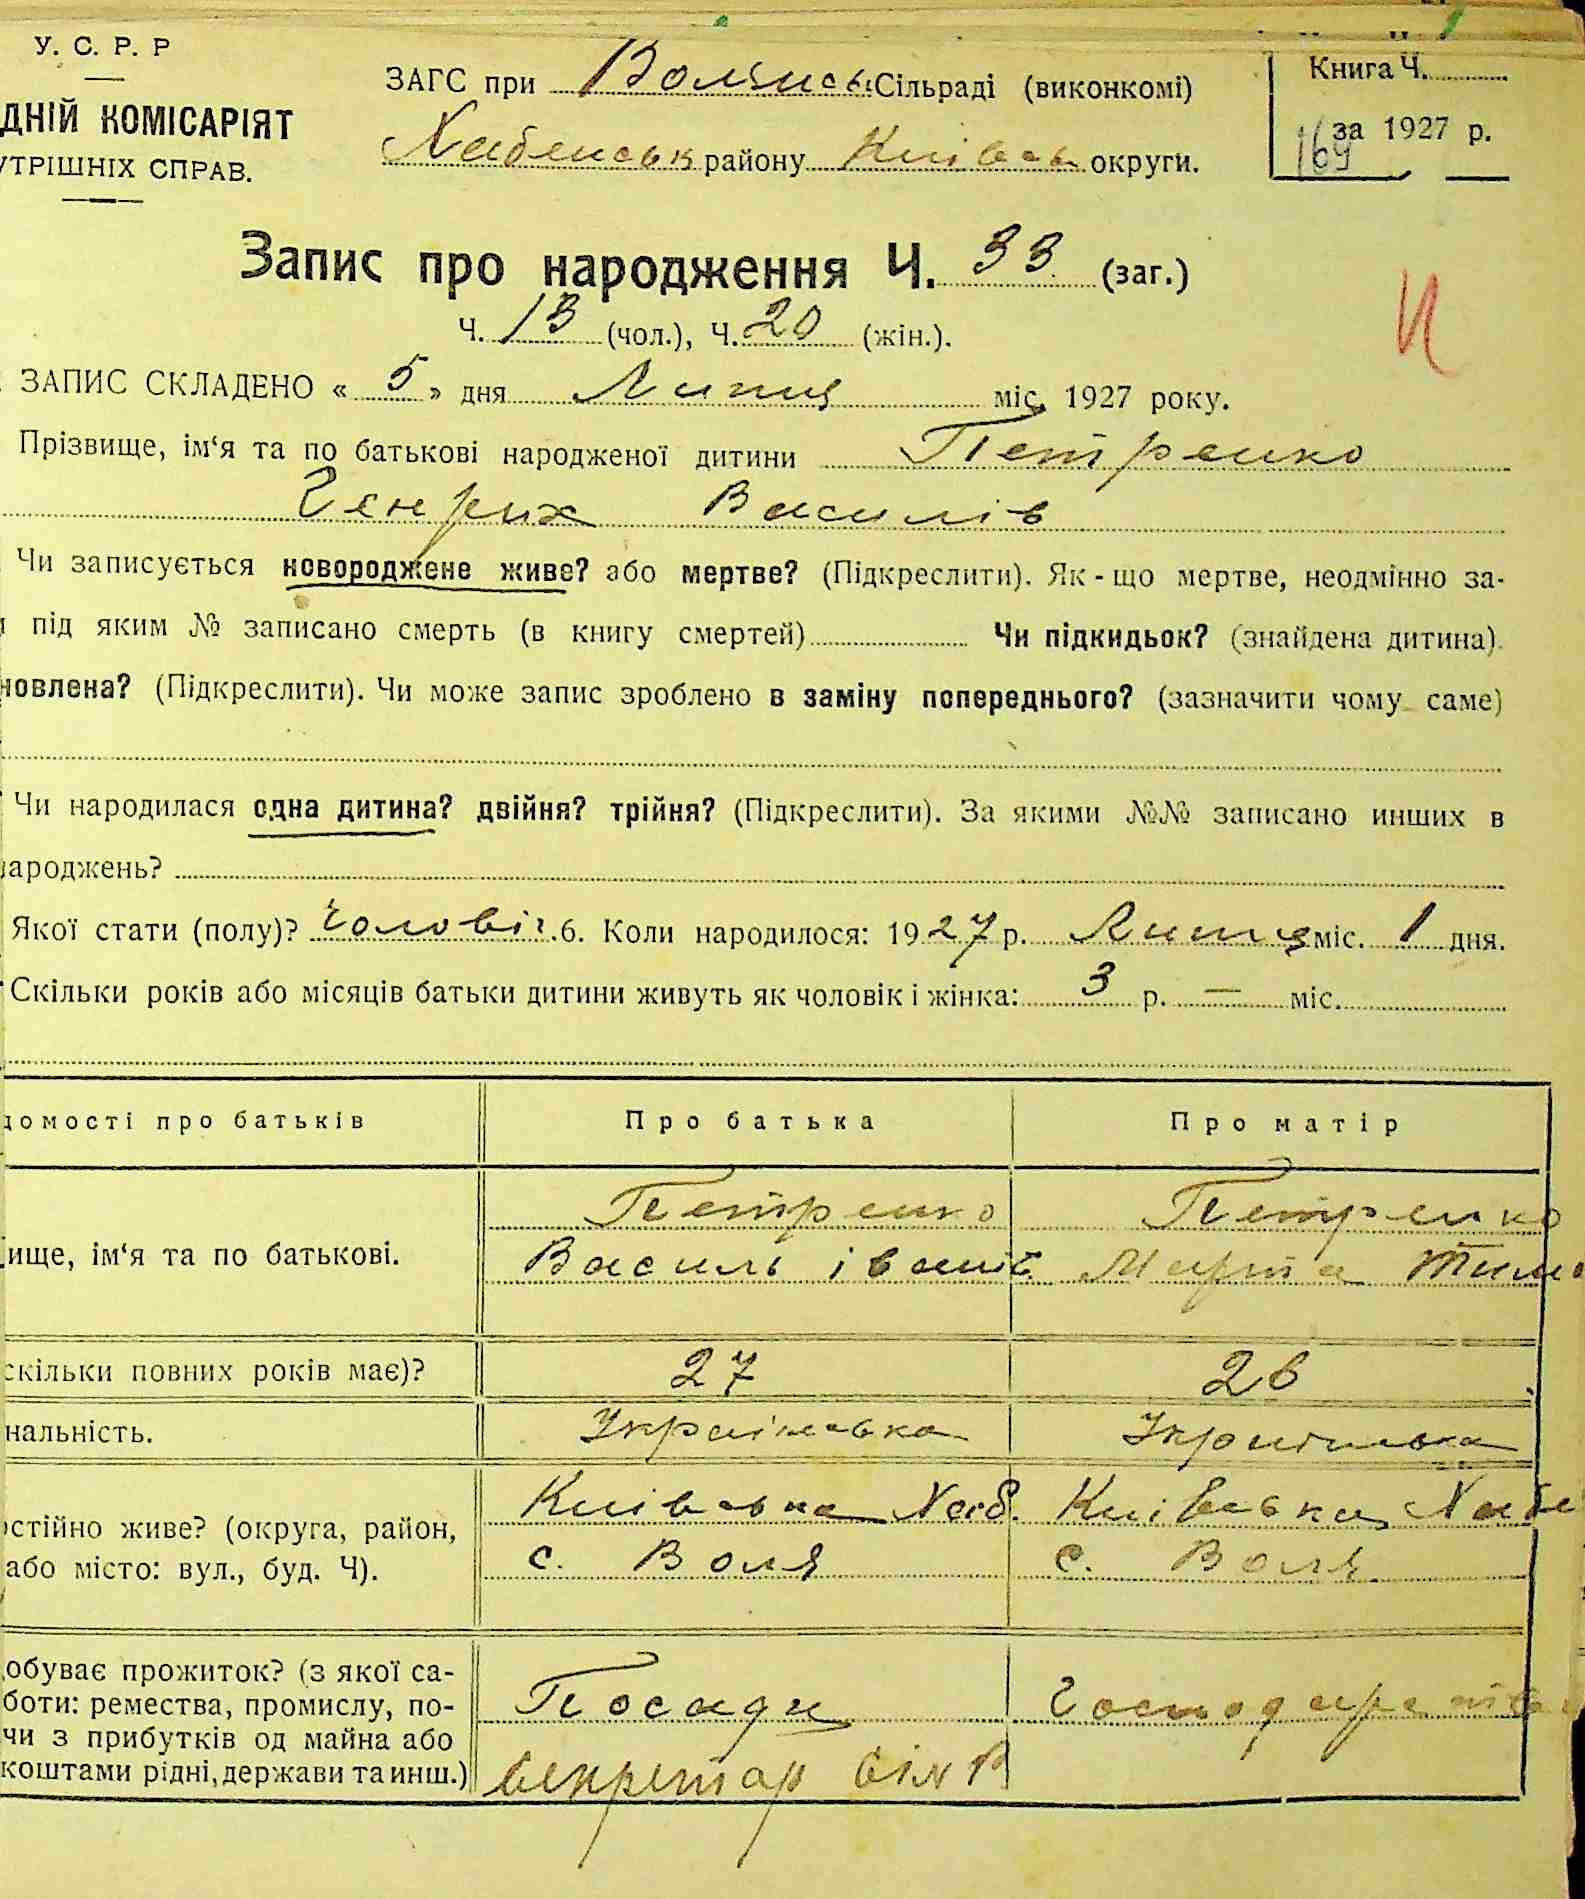 У. С. Р. Р
ДНІЙ КОМІСАРІЯТ
УТРІШНІХ СПРАВ.
ЗАГС при Волянськ Сільраді (виконкомі)
Хабенськ району Київськ округи.
Книга Ч.
за 1927 р.
169
Запис про народження Ч. 33 (заг.)
Ч. 13 (чол.), Ч. 20 (жін.).
ЗАПИС СКЛАДЕНО « 5 » дня Липця міс. 1927 року.
Прізвище, ім‘я та по батькові народженої дитини Петренко
Генрих Василів
Чи записується новороджене живе? або мертве? (Підкреслити). Як-що мертве, неодмінно за-
під яким № записано смерть (в книгу смертей) Чи підкидьок? (знайдена дитина).
новлена? (Підкреслити). Чи може запис зроблено в заміну попереднього? (зазначити чому саме)
Чи народилася одна дитина? двійня? трійня? (Підкреслити). За якими №№ записано инших в
ароджень?
Якої стати (полу)? чоловіч. 6. Коли народилося: 1927 р. Липця міс. 1 дня.
Скільки років або місяців батьки дитини живуть як чоловік і жінка: 3 р. — міс.
домості про батьків Про батька Про матір
ище, ім‘я та по батькові.
Петренко
Василь іванів
Петренко
Марта Тимо
скільки повних років має)? 27 26
нальність. Українська Українська
остійно живе? (округа, район,
або місто: вул., буд. Ч).
Київська Хаб.
с. Воля
Київська Хабе
с. Воля
обуває прожиток? (з якої са-
боти: ремества, промислу, по-
чи з прибутків од майна або
коштами рідні, держави та инш.)
Посади
секретар сілР
Господарства